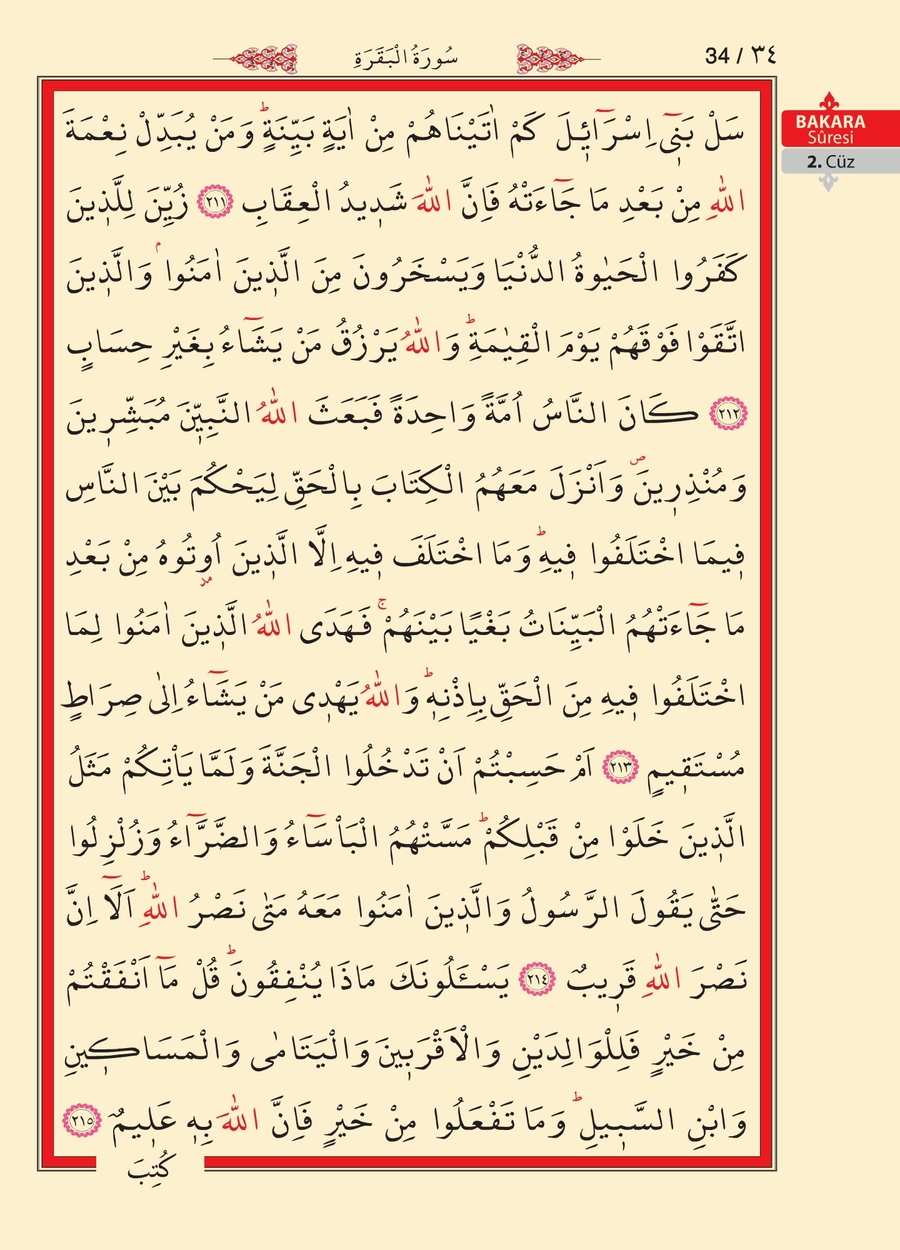 ٣٤ / 34
سُورَةُ الْبَقَرَةِ
BAKARA
Sûresi
2. Cüz
سَلْ بَنٖٓي اِسْرَٓائٖلَ كَمْ اٰتَيْنَاهُمْ مِنْ اٰيَةٍ بَيِّنَةٍؕ وَمَنْ يُبَدِّلْ نِعْمَةَ
اللّٰهِ مِنْ بَعْدِ مَا جَٓاءَتْهُ فَاِنَّ اللّٰهَ شَدٖيدُ الْعِقَابِ ﴿٢١١﴾ زُيِّنَ لِلَّذٖينَ
كَفَرُوا الْحَيٰوةُ الدُّنْيَا وَيَسْخَرُونَ مِنَ الَّذٖينَ اٰمَنُواۘ وَالَّذٖينَ
اتَّقَوْا فَوْقَهُمْ يَوْمَ الْقِيٰمَةِؕ وَاللّٰهُ يَرْزُقُ مَنْ يَشَٓاءُ بِغَيْرِ حِسَابٍ
﴿٢١٢﴾ كَانَ النَّاسُ اُمَّةً وَاحِدَةً فَبَعَثَ اللّٰهُ النَّبِيّٖنَ مُبَشِّرٖينَ
وَمُنْذِرٖينَࣕ وَاَنْزَلَ مَعَهُمُ الْكِتَابَ بِالْحَقِّ لِيَحْكُمَ بَيْنَ النَّاسِ
فٖيمَا اخْتَلَفُوا فٖيهِؕ وَمَا اخْتَلَفَ فٖيهِ اِلَّا الَّذٖينَ اُو۫تُوهُ مِنْ بَعْدِ
مَا جَٓاءَتْهُمُ الْبَيِّنَاتُ بَغْيًا بَيْنَهُمْۚ فَهَدَى اللّٰهُ الَّذٖينَ اٰمَنُوا لِمَا
اخْتَلَفُوا فٖيهِ مِنَ الْحَقِّ بِاِذْنِهٖؕ وَاللّٰهُ يَهْدٖي مَنْ يَشَٓاءُ اِلٰى صِرَاطٍ
مُسْتَقٖيمٍ ﴿٢١٣﴾ اَمْ حَسِبْتُمْ اَنْ تَدْخُلُوا الْجَنَّةَ وَلَمَّا يَأْتِكُمْ مَثَلُ
الَّذٖينَ خَلَوْا مِنْ قَبْلِكُمْؕ مَسَّتْهُمُ الْبَأْسَٓاءُ وَالضَّرَّٓاءُ وَزُلْزِلُوا
حَتّٰى يَقُولَ الرَّسُولُ وَالَّذٖينَ اٰمَنُوا مَعَهُ مَتٰى نَصْرُ اللّٰهِؕ اَلَٓا اِنَّ
نَصْرَ اللّٰهِ قَرٖيبٌ ﴿٢١٤﴾ يَسْـَٔلُونَكَ مَاذَا يُنْفِقُونَؕ قُلْ مَٓا اَنْفَقْتُمْ
مِنْ خَيْرٍ فَلِلْوَالِدَيْنِ وَالْاَقْرَبٖينَ وَالْيَتَامٰى وَالْمَسَاكٖينِ
وَابْنِ السَّبٖيلِؕ وَمَا تَفْعَلُوا مِنْ خَيْرٍ فَاِنَّ اللّٰهَ بِهٖ عَلٖيمٌ ﴿٢١٥﴾
كُتِبَ